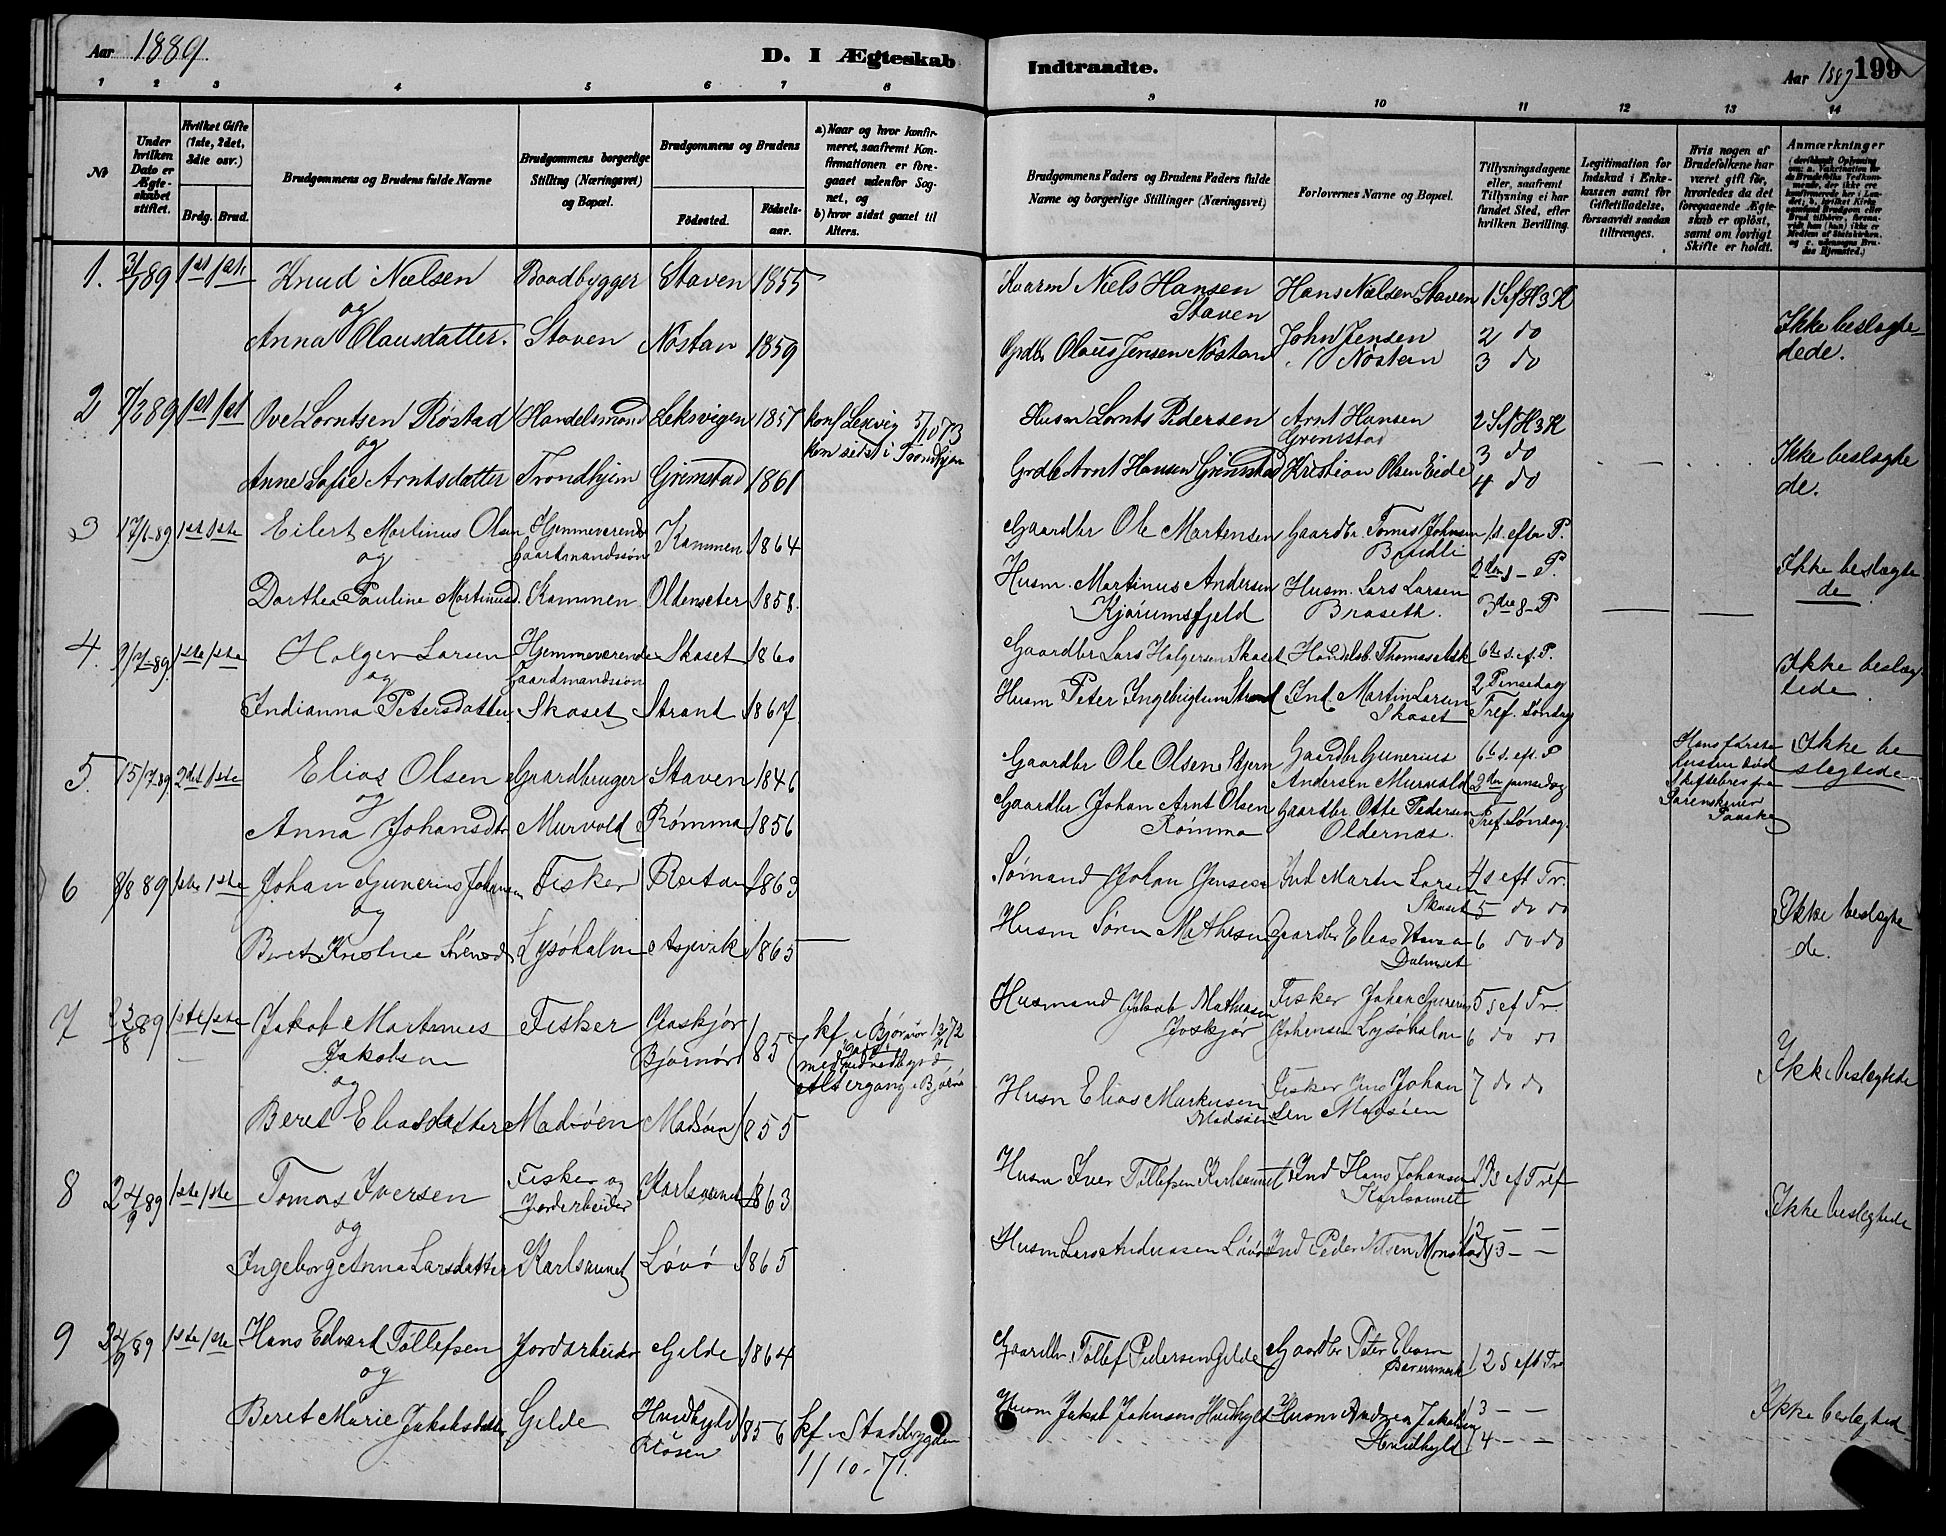 Aar 1889.
D. I Ægteskab Indtraadte.
Aar 1889 199
1 2 3 4 5 6 7 8 9 10 11 12 13 14
No
Under hvilken Dato er Ægteskabet stiftet.
Hvilket Gifte (1ste, 2det, 3die osv.)
Brdg. Brud.
Brudgommens og Brudens fulde Navne
Brudgommens borgerlige Stilling (Næringsvei) og Bopæl.
Brudgommens og Brudens
Födested.
Födselsaar.
a) Naar og hvor konfirmeret, saafremt Konfirmationen er foregaaet udenfor Sognet, og
b) hvor sidst gaaet til Alters.
Brudgommens Faders og Brudens Faders fulde Navne og borgerlige Stillinger (Næringsvei)
Forlovernes Navne og Bopæl.
Tillysningsdagene eller, saafremt Tillysning ei har fundet Sted, efter hvilken Bevilling.
Legitimation for Indskud i Enkekassen samt for Giftetilladelse, forsaavidt saadan tiltrænges.
Hvis nogen af Brudefolkene har været gift för, hvorledes da det foregaaende Ægteskab er oplöst, samt om lovligt Skifte er holdt.
Anmærkninger
1. 3/1 89 1ste 1ste Knud Nielsen Baadbygger Staven 1855
og
Anna Olausdatter. Staven Nöstan 1859
Kaarm Niels Hansen Staven Hans Nielsen Staven 1 S e/ H 3 K
Grdbr Olaus Jensen Nöstan John Jensen Nöstan 2 do
3 do
Ikke beslægtedede.
2 7/2 89 1st 1st Ove Lorntsen Röstad Handelsmand Leksvigen 1857 konf Lexvig 5/10 73
kom sidst i Trondhjem
og
Anne Sofie Arntsdatter Trondhjem Grimstad 1861
Husm Lornts Pedersen Arnt Hansen Grimstad 2 S e/ H 3 K
Grdb Arnt Hansen Grimstad Kristian Olsen Eide 3 do
4 do
Ikke beslægtede.
3 17/6-89 1ste 1ste Eilert Martinus Olsen Hjemmeverende Gaardmandssön Kammen 1864
og
Dorthea Pauline Martinusd. Kammen Oldenseter 1858.
Gaardbr Ole Martensen Gaardbr. Tomas Johnsen 1 s. efter P.
Husm. Martinus Andersen Kjörumsfjeld Husm. Lars Larsen Braseth. 2den s - P.
3die s - P
Ikke beslægtede
4. 9/7-89. 1ste 1ste Holger Larsen Hjemmeverende Gaardmandssön Skaset 1860
og
Indianna Petersdatter Skaset Strand 1867.
Gaardbr Lars Holgersen Skaset Handelsb. Thomas Ask 6te s. ef. P.
Husm Peter Ingebrigtsen Strand Ind. Martin Larsen Skaset 2 Pinsedag
Tref. Söndag
Ikke beslægtede
5. 15/7.89 2det 1ste Elias Olsen Gaardbruger Staven 1846
og
Anna Johansdtr Murvold Römma 1856
Gaardbr Ole Olsen Gaardbr Gunerius Andersen Murvold 6te s. eft. P
2den pinsedag
Gaardbr Johan Arnt Olsen Römma Gaardbr Otte Pedersen Oldernæs. Tref. Söndag.
Hans förste Hustru död
Ikke beslegtede
6 8/8 89 1ste 1ste Johan Gunerius Johansen Fisker Reitan 1863
og
Beret Kristine Sörensd Lysöholm Aspvik 1865
Sömand Johan Jensen Ind Martin Larsen Skaset 4 s eft Tr.
5 do do
Husm Sören Mathisen Gaardbr Elias 6 do do
Ikke beslægtede.
7 23/8 89 1ste 1ste Jakob Martinus Jakobsen Fisker Bjørnör 1857 kf i Bjørnör 72
og
Beret Eliasdatter Madsöen Madsöen 1855
Husmand Jakob Mathisen Fisker Johan Gunerius Johansen Lysöholm 5 s ef Tr.
6 do do
Husm Elias Markusen Madsöen Fisker Jens Johansen Madsöen 7 do do
Ikke beslegtede
8 24/9 89 1ste 1ste Tomas Iversen Fisker og Jordarbeider Karlsaunet 1863
og
Ingeborg Anna Larsdatter Karlsaunet Lövö 1865
Husm Iver Tillefsen Karlsaunet Ind Hans Johansen Karlsaunet 11 s ef Tref
12 – –
Husm Lars Andreassen Lövö Ind Peder Nilsen Monstad 13 – –
Ikke beslegtede
9 24/9 89 1ste 1ste Hans Edvart Töllefsen Jordarbeider Gilde 1864
og
Beret Marie Jakobsdatter Gilde Hvidhyld 1856 kf. Stadsbygden
1/10-71.
Gaardbr. Töllef Pedersen Gilde Gaardbr Peter 12 s eft Tr
Husm Jakob Johnsen Hvidhyld Husm Andreas Jakobsen Hvidhyld 13 – –
14 – –
Ikke beslegtede